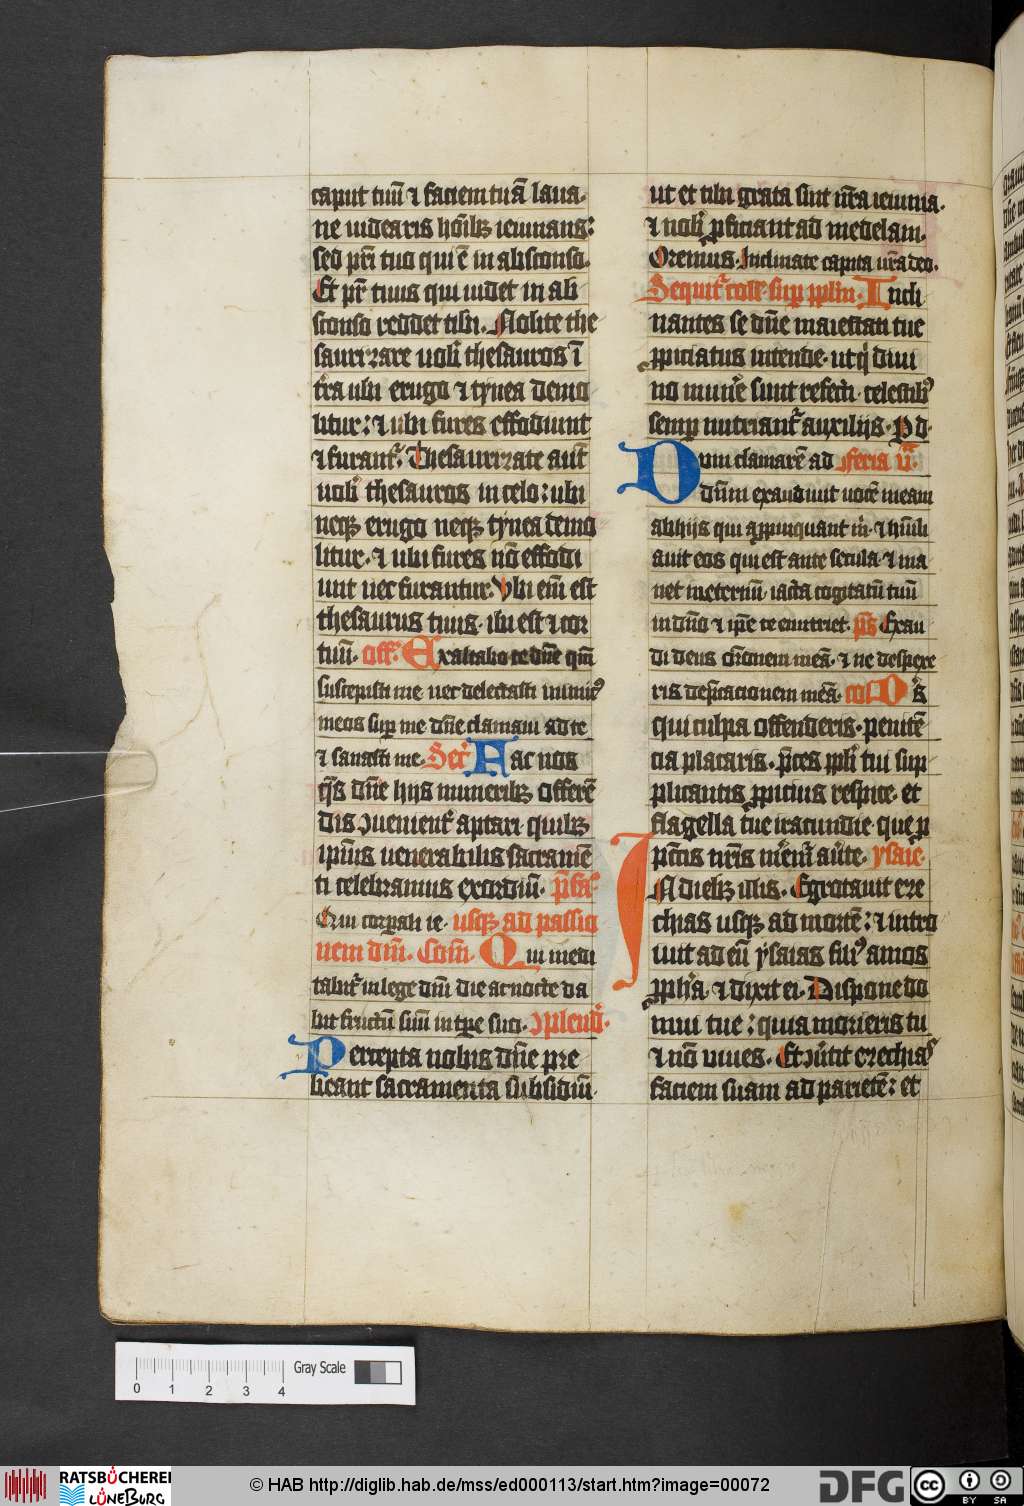 caput tuū ⁊ faciem tuā laua·
ne uidearis hōībꝫ ieiunans:
sed pr̄i tuo qui ē in absconso·
Et pr̄ tuus qui uidet in ab
sconso reddet tibi. Nolite the
saurizare uob̓ thesauros ī
t̓ra ubi erugo ⁊ tynea demo
litur: ⁊ ubi fures effodiunt
⁊ furant᷑. Thesaurizate aūt
uob̓ thesauros in celo: ubi
neqꝫ erugo neqꝫ tynea demo
litur· ⁊ ubi fures nō effodi
unt nec furantur. Vbi em̄ est
thesaurus tuus· ibi est ⁊ cor
tuū. Off. Exaltabo te dn̄e qm̄
suscepisti me nec delectasti inimicꝰ
meos sup me dn̄e clamaui ad te
⁊ sanasti me. Secr̄ Fac nos
q̄s dn̄e hijs muneribꝫ offerē
dis ꝯuenient̓ aptari quibꝫ
ipsius uenerabilis sacramē
ti celebramus exordiū. p̄fac̄
Qui corporali ie· usqꝫ ad passio
nem dn̄i. Com̄. Qui medi
tabit᷑ in lege dn̄i die ac nocte da
bit fructū suū in tp̄e suo. ꝯplend̓.
Percepta nobis dn̄e pre
beant sacramenta subsidiū·
ut et tibi grata sint nr̄a ieiunia·
⁊ nob̓ ꝓficiant ad medelam.
Oremus. Inclinate capita ur̄a deo.
Sequit᷑ coll̓ sup pplm̄. Incli
nantes se dn̄e maiestati tue
ꝓpiciatus intende· ut q̓ diui
no mun̓e sunt refecti· celestibꝰ
semp nutriant᷑ auxilijs. P d.
Dum clamarē ad Feria v̄.
dn̄m exaudiuit uocē meam
ab hijs qui appinquant m̓· ⁊ hūili
auit eos qui est ante secula ⁊ ma
net in eternū· iacta cogitatū tuū
in dn̄o ⁊ ip̄e te enutriet. p̄s Exau
di deus or̄onem meā· ⁊ ne despexe
ris dep̄cacionem meā. col̓ Ds̓
qui culpa offenderis· penitē
cia placaris· p̄ces ppl̓i tui sup
plicantis ꝓpicius respice· et
flagella tue iracundie· que ꝓ
pc̄tis nr̄is mēm̄r auerte. ysaie.
In diebꝫ illis. Egrotauit eze
chias usqꝫ ad mortē: ⁊ intro
iuit ad eū ysaias filiꝰ amos
ꝓpha· ⁊ dixit ei. Dispone do
mui tue: quia morieris tu
⁊ nō uiues. Et ꝯūtit ezechias
faciem suam ad parietē: et
0 1 2 3 4
Gray Scale
RATSBÜCHEREI
LÜNEBURG
© HAB http://diglib.hab.de/mss/ed000113/start.htm?image=00072
DFG
cc BY SA